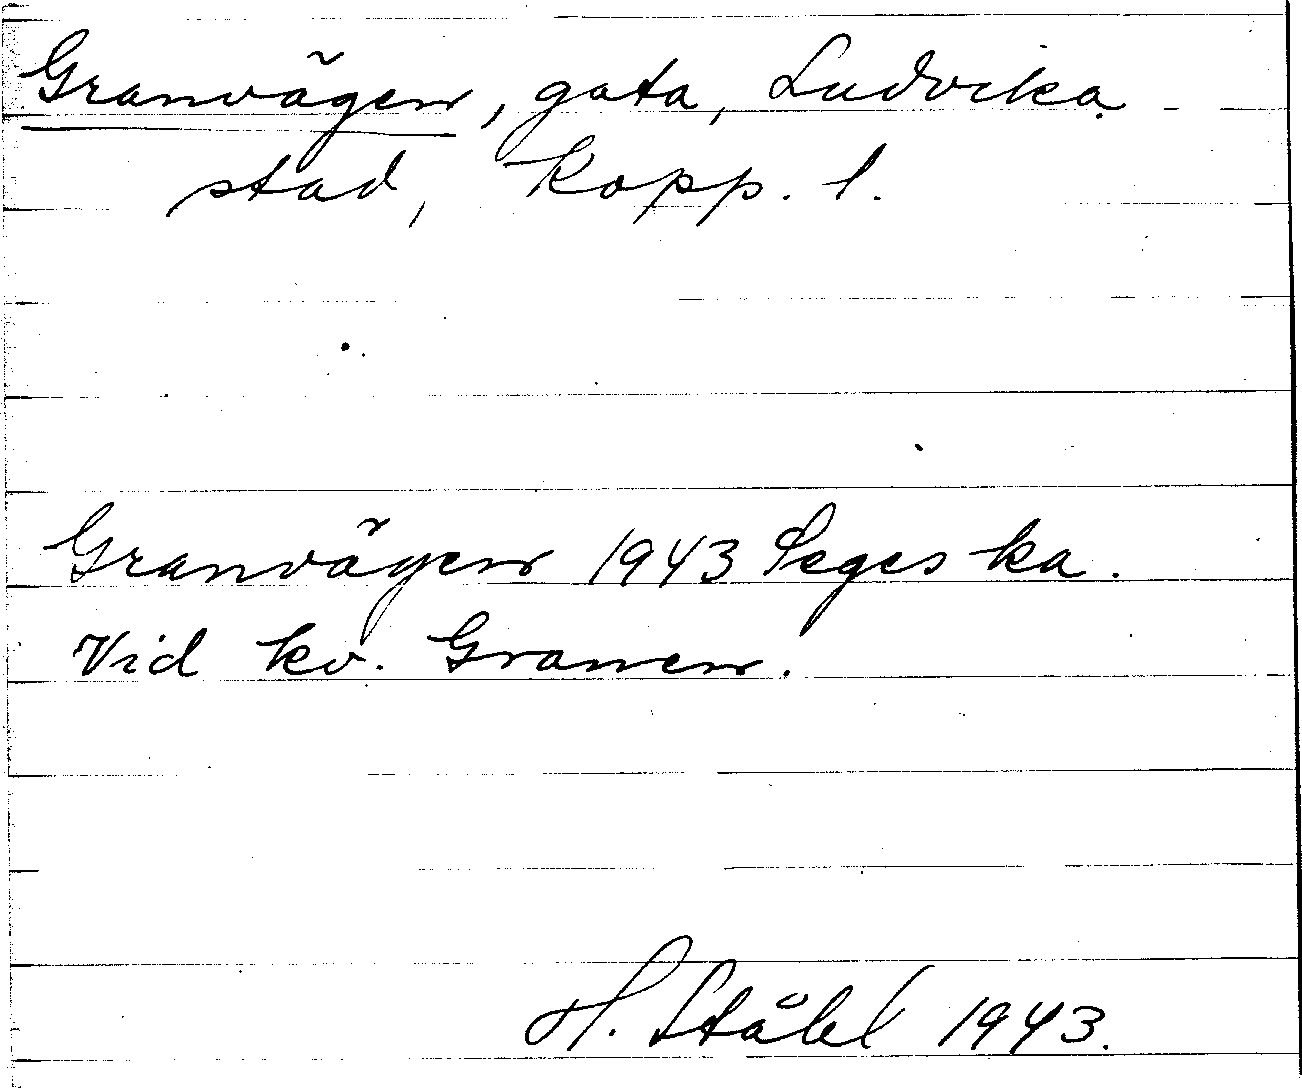 Granvägen, gata, Ludvika
stad, Kopp. l.
Granvägen 1943 Seges ka.
Vid kv. Granen.
H. Ståhl 1943.